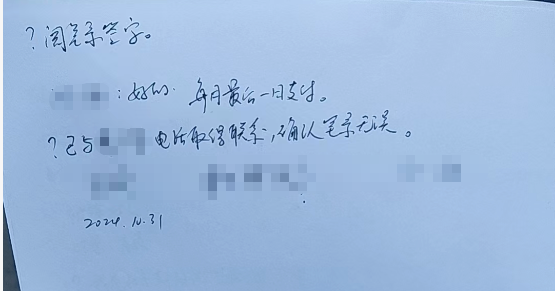 ?阅笔录签字。
:好的。每月最后一日支付。
?已与电话取得联系,确认笔录无误。
2024.10.31